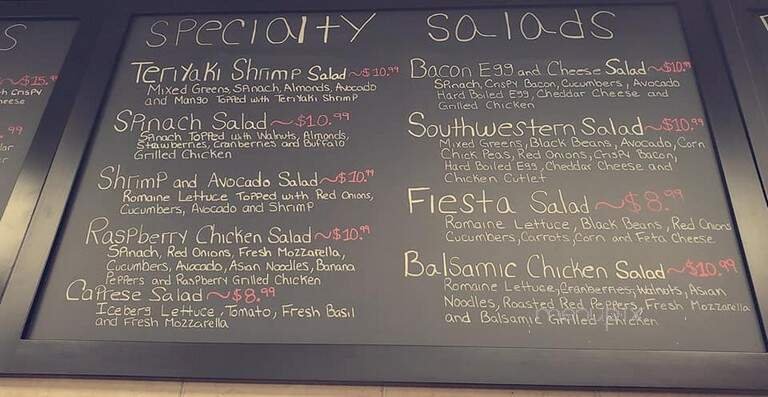 Specialty Salads
Teriyaki Shrimp Salad ~ $10.99
Mixed Greens, Spinach, Almonds, Avocado
and Mango Topped with Teriyaki Shrimp
Spinach Salad ~ $10.99
Spinach Topped with Walnuts, Almonds,
Strawberries, Cranberries and Buffalo
Grilled Chicken
Shrimp and Avocado Salad ~ $10.99
Romaine Lettuce Topped with Red Onions,
Cucumbers, Avocado and Shrimp
Raspberry Chicken Salad ~ $10.99
Spinach, Red Onions, Fresh Mozzarella,
Cucumbers, Avocado, Asian Noodles, Banana
Peppers and Raspberry Grilled Chicken
Caprese Salad ~ $8.99
Iceberg Lettuce, Tomato, Fresh Basil
and Fresh Mozzarella
Bacon Egg and Cheese Salad ~ $10.99
Spinach, Crispy Bacon, Cucumbers, Avocado
Hard Boiled Egg, Cheddar Cheese and
Grilled Chicken
Southwestern Salad ~ $10.99
Mixed Greens, Black Beans, Avocado, Corn
Chick Peas, Red Onions, Crispy Bacon,
Hard Boiled Egg, Cheddar Cheese and
Chicken Cutlet
Fiesta Salad ~ $8.99
Romaine Lettuce, Black Beans, Red Onions
Cucumbers, Carrots, Corn and Feta Cheese
Balsamic Chicken Salad ~ $10.99
Romaine Lettuce, Cranberries, Walnuts, Asian
Noodles, Roasted Red Peppers, Fresh Mozzarella
and Balsamic Grilled Chicken